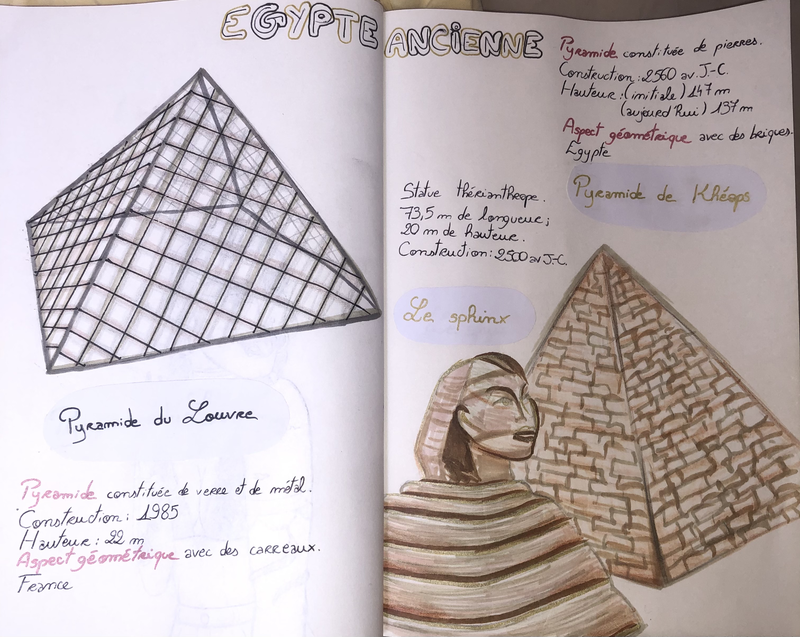 EGYPTE ANCIENNE
Pyramide du Louvre
Pyramide constituée de verre et de métal.
Construction : 1985
Hauteur : 22 m
Aspect géométrique avec des carreaux.
France
Pyramide constituée de pierres.
Construction : 2560 av. J-C.
Hauteur : (initiale) 147 m
(aujourd'hui) 137 m
Aspect géométrique avec des briques.
Egypte
Pyramide de Khéops
Statue thérianthrope.
73,5 m de longueur ;
20 m de hauteur.
Construction : 2500 av J-C.
Le sphinx